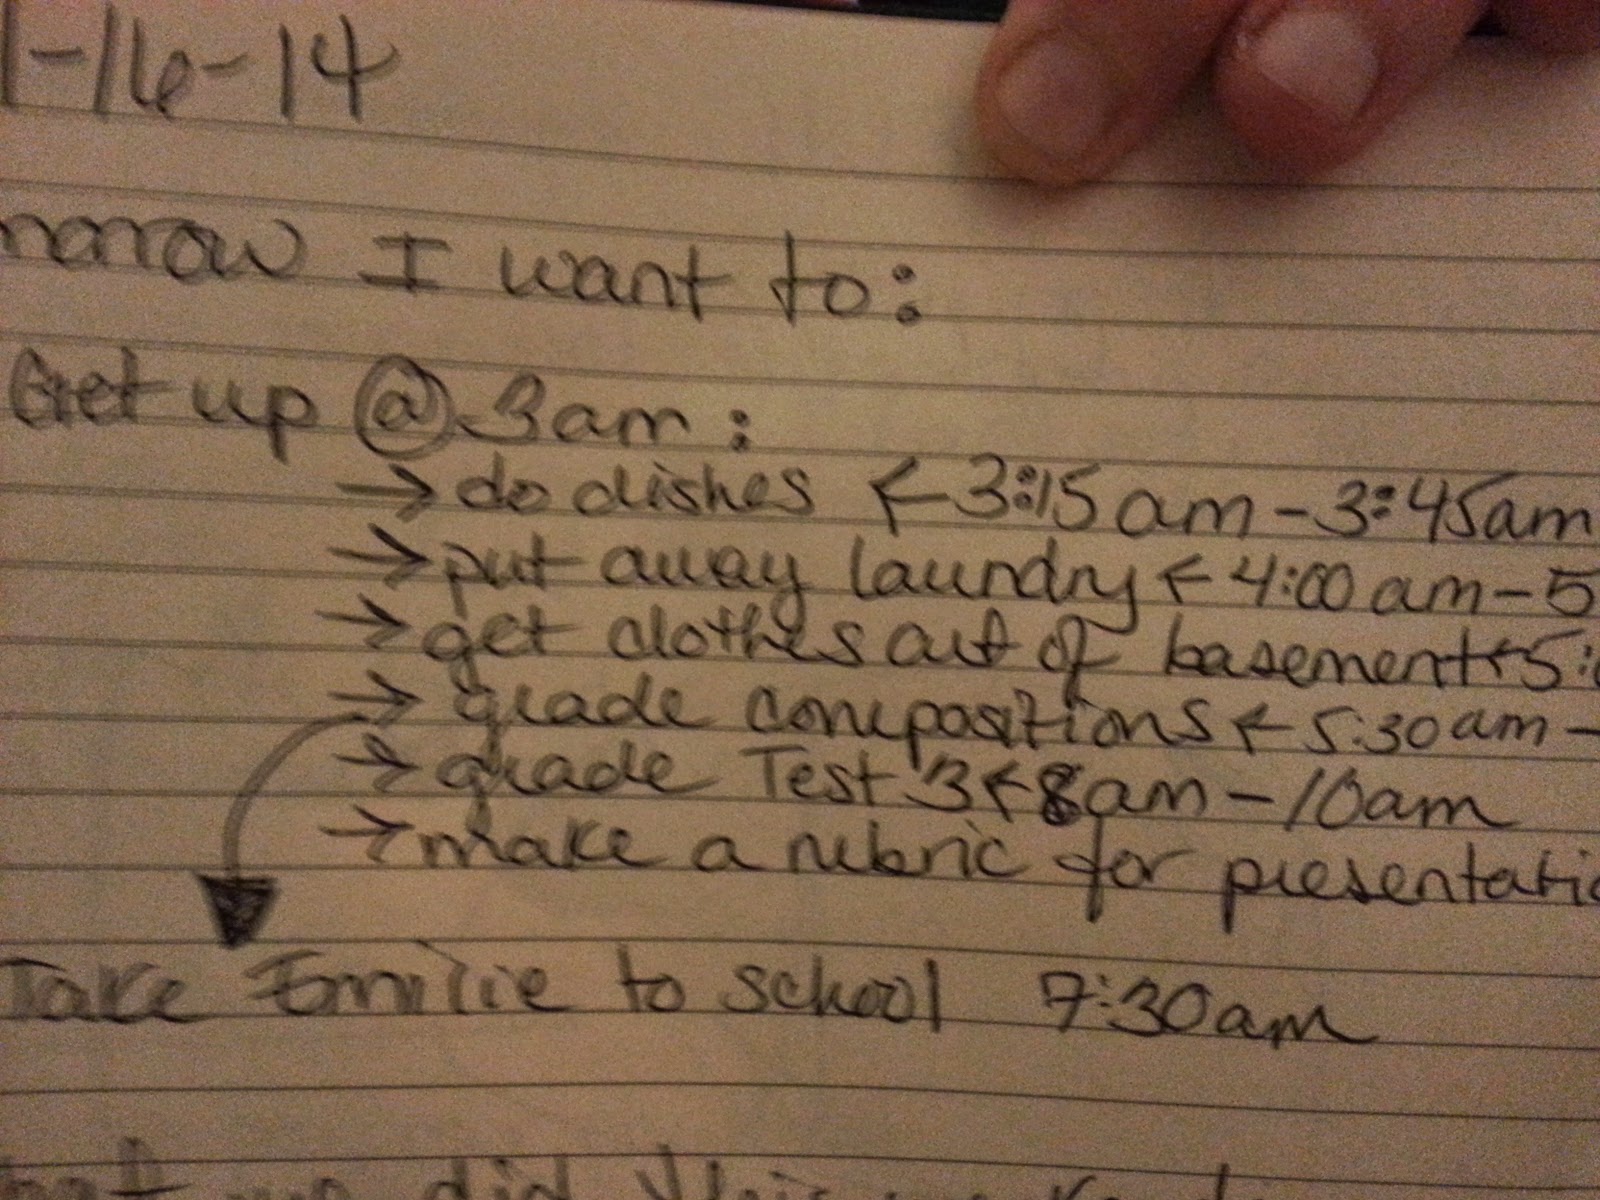 1-16-14
morrow I want to:
Get up @ 3am:
→ do dishes ← 3:15am - 3:45am
→ put away laundry ← 4:00am - 5
→ get clothes out of basement ← 5:
→ grade compositions ← 5:30am -
→ grade Test 3 ← 8am - 10am
→ make a rubric for presentatio
Take Emilie to school 7:30am
did this